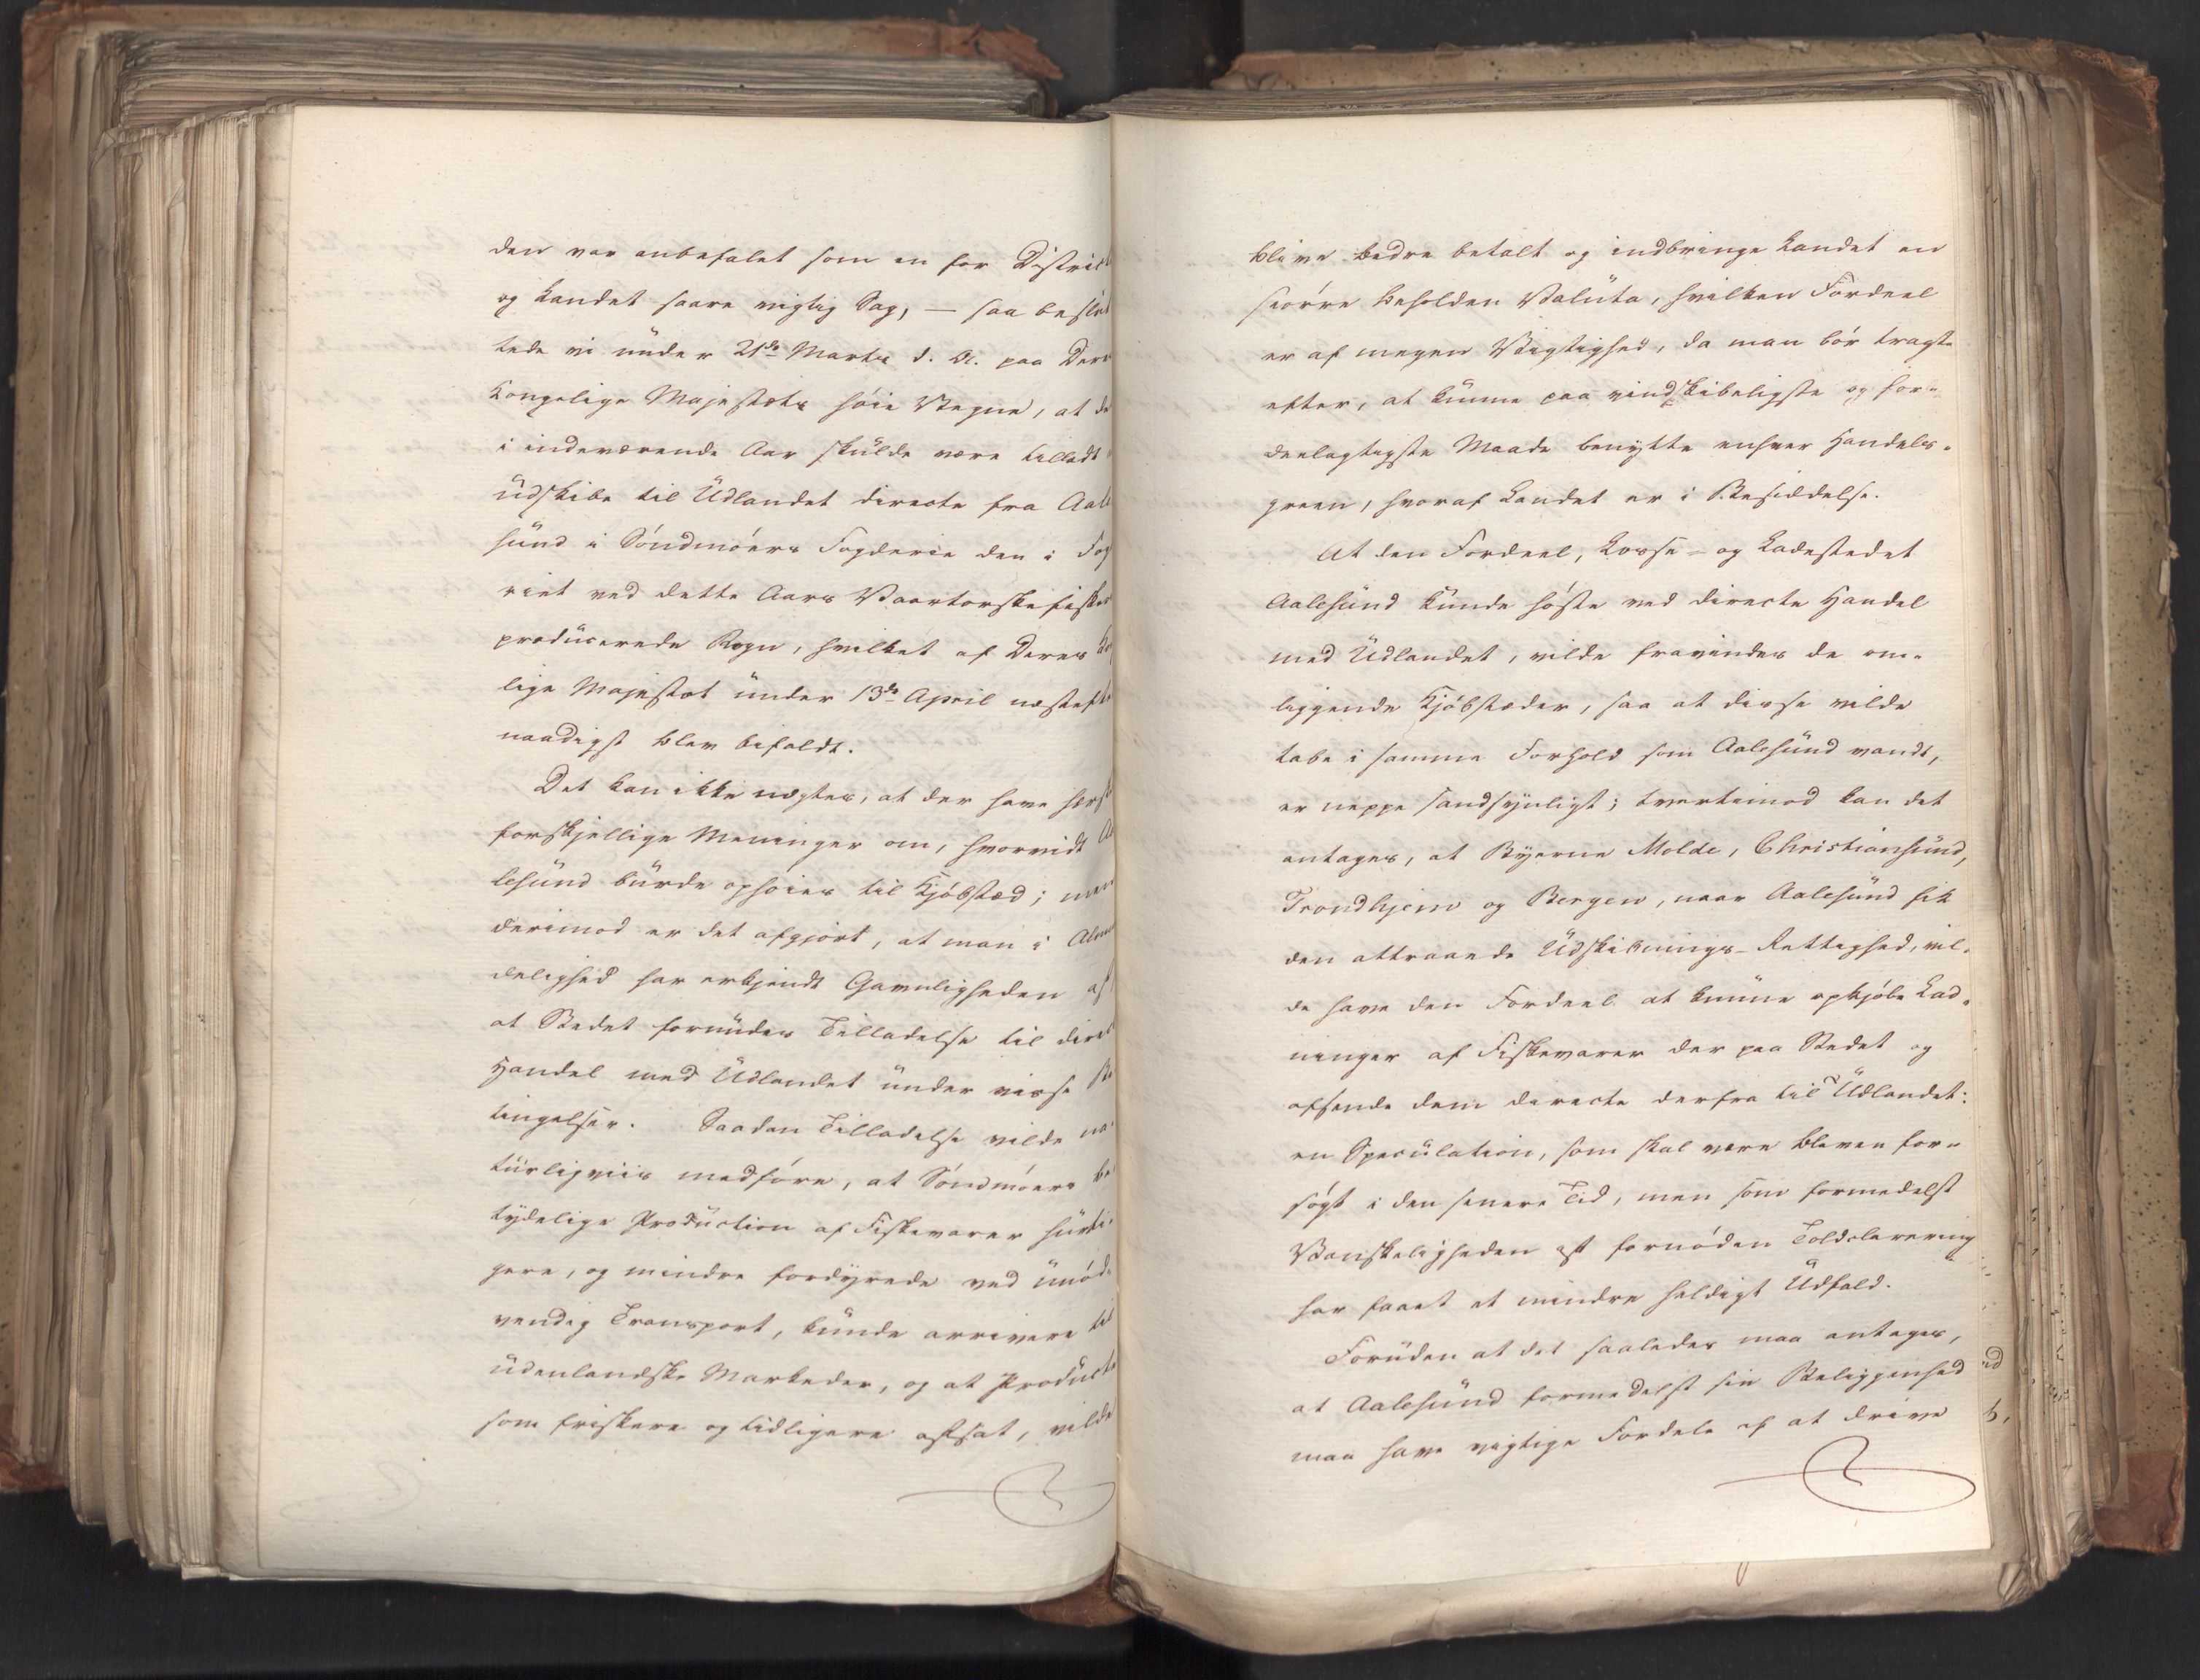 den var anbefalet som en for District
og Landet saare vigtig Sag, — saa beslut
tede vi under 21de Marts d. A. paa Deres
Kongelige Majestæts høie Vegne, at de
i indeværende Aar skulde være tilladt
udskibe til Udlandet directe fra Aale
sund i Søndmøers Fogderie den i Fog
riet ved dette Aars Vaartorskefiskeri
producerede Rogn, hvilket af Deres Kon
lige Majestæt under 13de April næstefter
naadigst blev bifaldt.
Det kan ikke nægtes, at der have hersk
forskjellige Meninger om, hvorvidt Aa
lesund burde ophøies til Kjøbstæd; men
derimod er det afgjort, at man i Almin
delighed har erkjendt Gavnligheden af
at Stedet forundes Tilladelse til direct
Handel med Udlandet under visse Be
tingelser. Saadan Tilladelse vilde na-
turligviis medføre, at Søndmøers be-
tydelige Production af Fiskevarer hurti-
gere, og mindre fordyrede ved unød-
vendig Transport, kunde arrivere til
udenlandske Markeder, og at Producte
som friskere og tidligere afsat, vilde
blive bedre betalt og indbringe Landet en
større beholden Valuta, hvilken Fordeel
er af megen Vigtighed, da man bør tragte
efter, at kunne paa vindskibeligste og for-
deelagtigste Maade benytte enhver Handels-
green, hvoraf Landet er i Besiddelse.
At den Fordeel, Losse- og Ladestedet
Aalesund kunde høste ved directe Handel
med Udlandet, vilde fravindes de om-
liggende Kjøbstæder, saa at disse vilde
tabe i samme Forhold som Aalesund vandt,
er neppe sandsynligt; tvertimod kan det
antages, at Byerne Molde, Christiansund,
Trondhjem og Bergen, naar Aalesund fik
den attraaede Udskibnings-Rettighed, vil-
de have den Fordeel at kunne opkjøbe Lad-
ninger af Fiskevarer der paa Stedet og
afsende dem directe derfra til Udlandet:
en Speculation, som skal være bleven for-
søgt i den senere Tid, men som formedelst
Vanskeligheden af fornøden Toldclarering
har faaet et mindre heldigt Udfald.
Foruden at det saaledes maa antages,
at Aalesund formedelst sin Beliggenhed
maa have vigtige Fordele af at drive